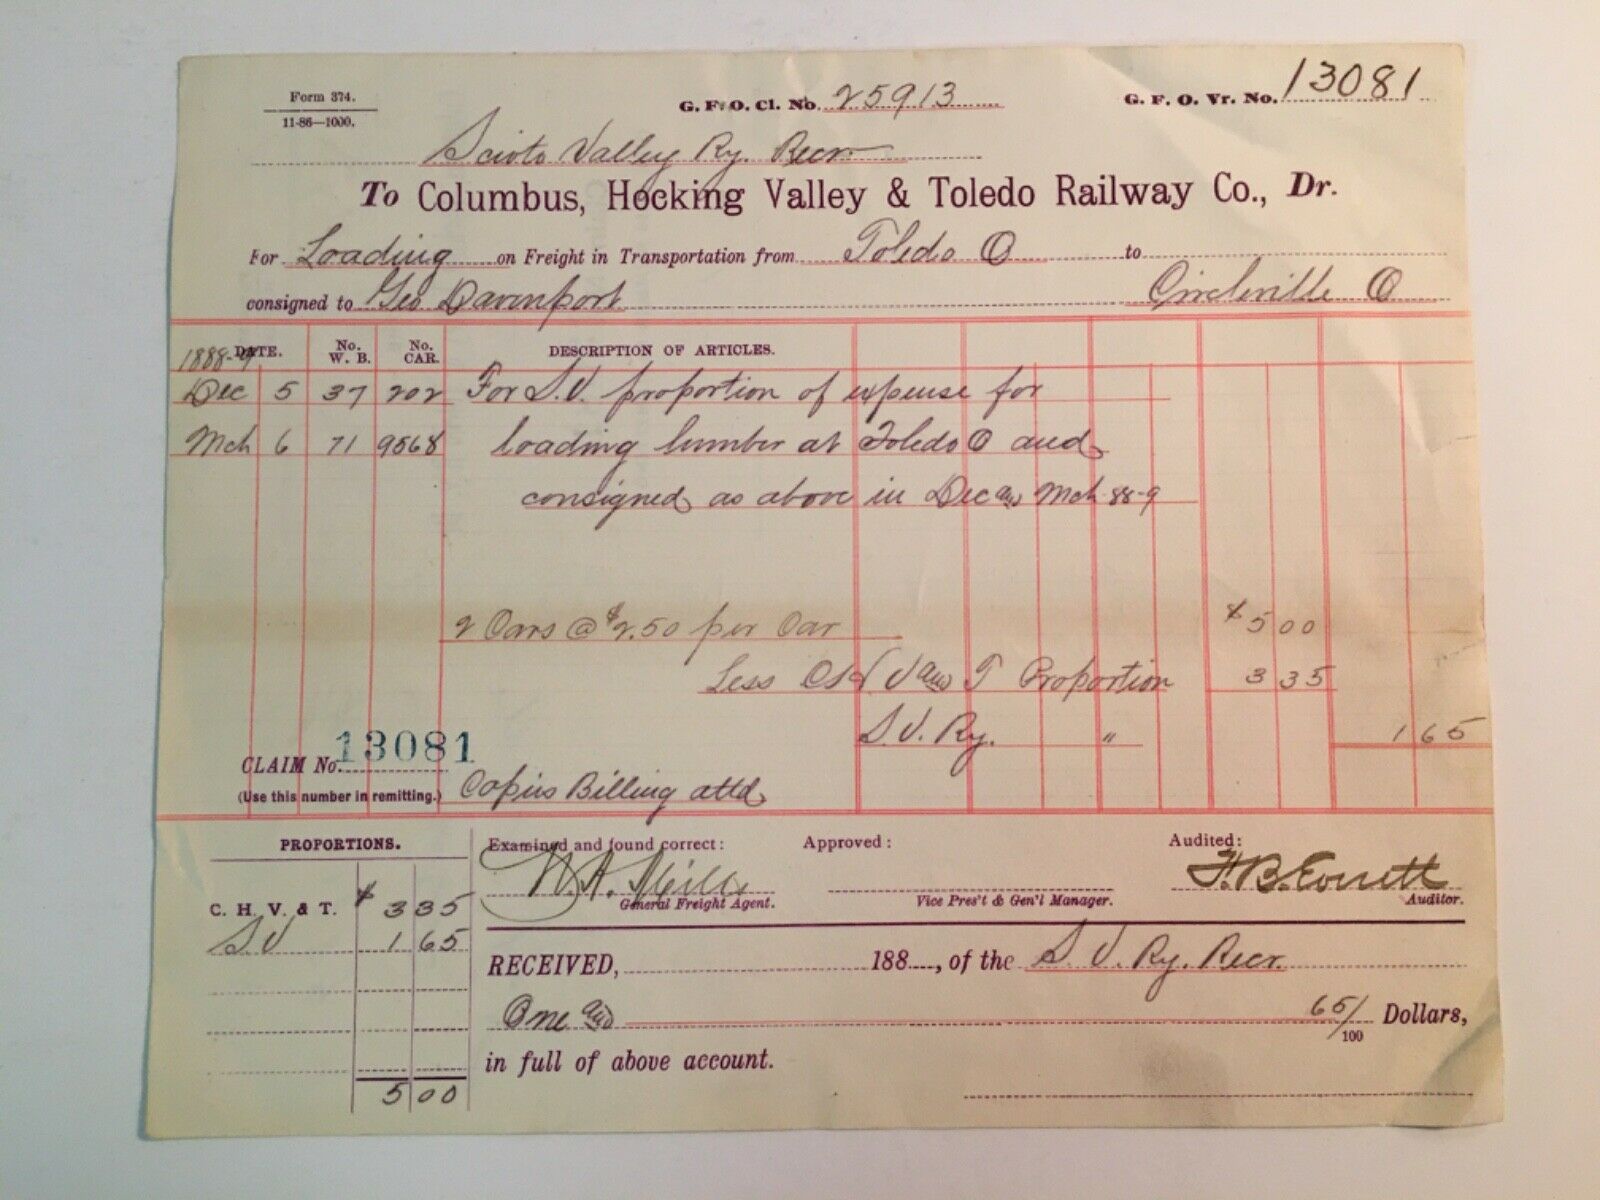 Form 374.
11-86—1000.
G. F. O. Cl. No. 25913
G. F. O. Vr. No. 13081
Scioto Valley Ry. Recr.
To Columbus, Hocking Valley & Toledo Railway Co., Dr.
For Loading on Freight in Transportation from Toledo O to
consigned to Geo Davenport Circleville O
1888-9
DATE. No. W. B. No. CAR. DESCRIPTION OF ARTICLES.
Dec 5 37 202 For S.V. proportion of expense for
Mch 6 71 9568 loading lumber at Toledo O and
consigned as above in Dec and Mch 88-9
2 Cars @ $2.50 per Car $5 00
Less C H V and T Proportion 3 35
S. V. Ry. " 1 65
CLAIM No. 13081
(Use this number in remitting.) Copies Billing attd
PROPORTIONS.
C. H. V. & T. $3 35
S.V 1 65
5 00
Examined and found correct: Approved: Audited:
General Freight Agent. Vice Pres't & Gen'l Manager. Auditor.
RECEIVED, 188 , of the S. V. Ry. Recr.
One and 65/100 Dollars,
in full of above account.